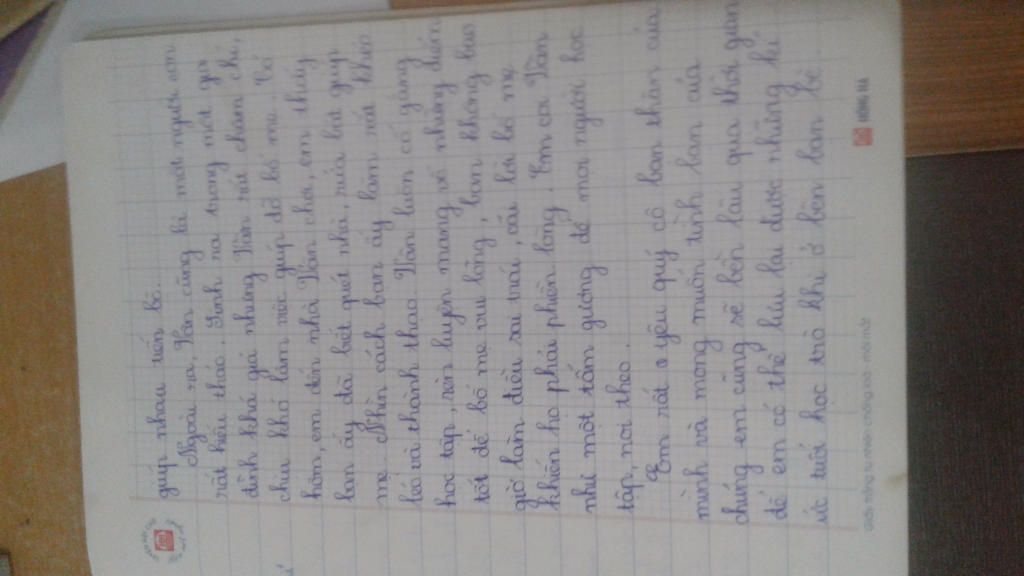 giúp nhau tiến bộ.
Ngoài ra, Vân cũng là một người con
rất hiếu thảo. Sinh ra trong một gia
đình khá giả nhưng Vân rất chăm chỉ,
chịu khó làm việc giúp đỡ bố mẹ. Có
hôm, em đến nhà Vân chơi, em thấy
bạn ấy đã biết quét nhà, rửa bát giúp
mẹ. Nhìn cách bạn ấy làm rất khéo
léo và thành thạo. Vân luôn cố gắng
học tập, rèn luyện mang về những điểm
tốt để bố mẹ vui lòng, bạn không bao
giờ làm điều sai trái, cãi lời bố mẹ
khiến họ phải phiền lòng. Em coi Vân
như một tấm gương để mọi người học
tập, noi theo.
Em rất yêu quý cô bạn thân của
mình và mong muốn tình bạn của
chúng em cũng sẽ bền lâu qua thời gian
để em có thể lưu lại được những kí
ức tuổi học trò khi ở bên bạn bè.
Giấy trắng tự nhiên chống loá - mỏi mắt
HỒNG HÀ